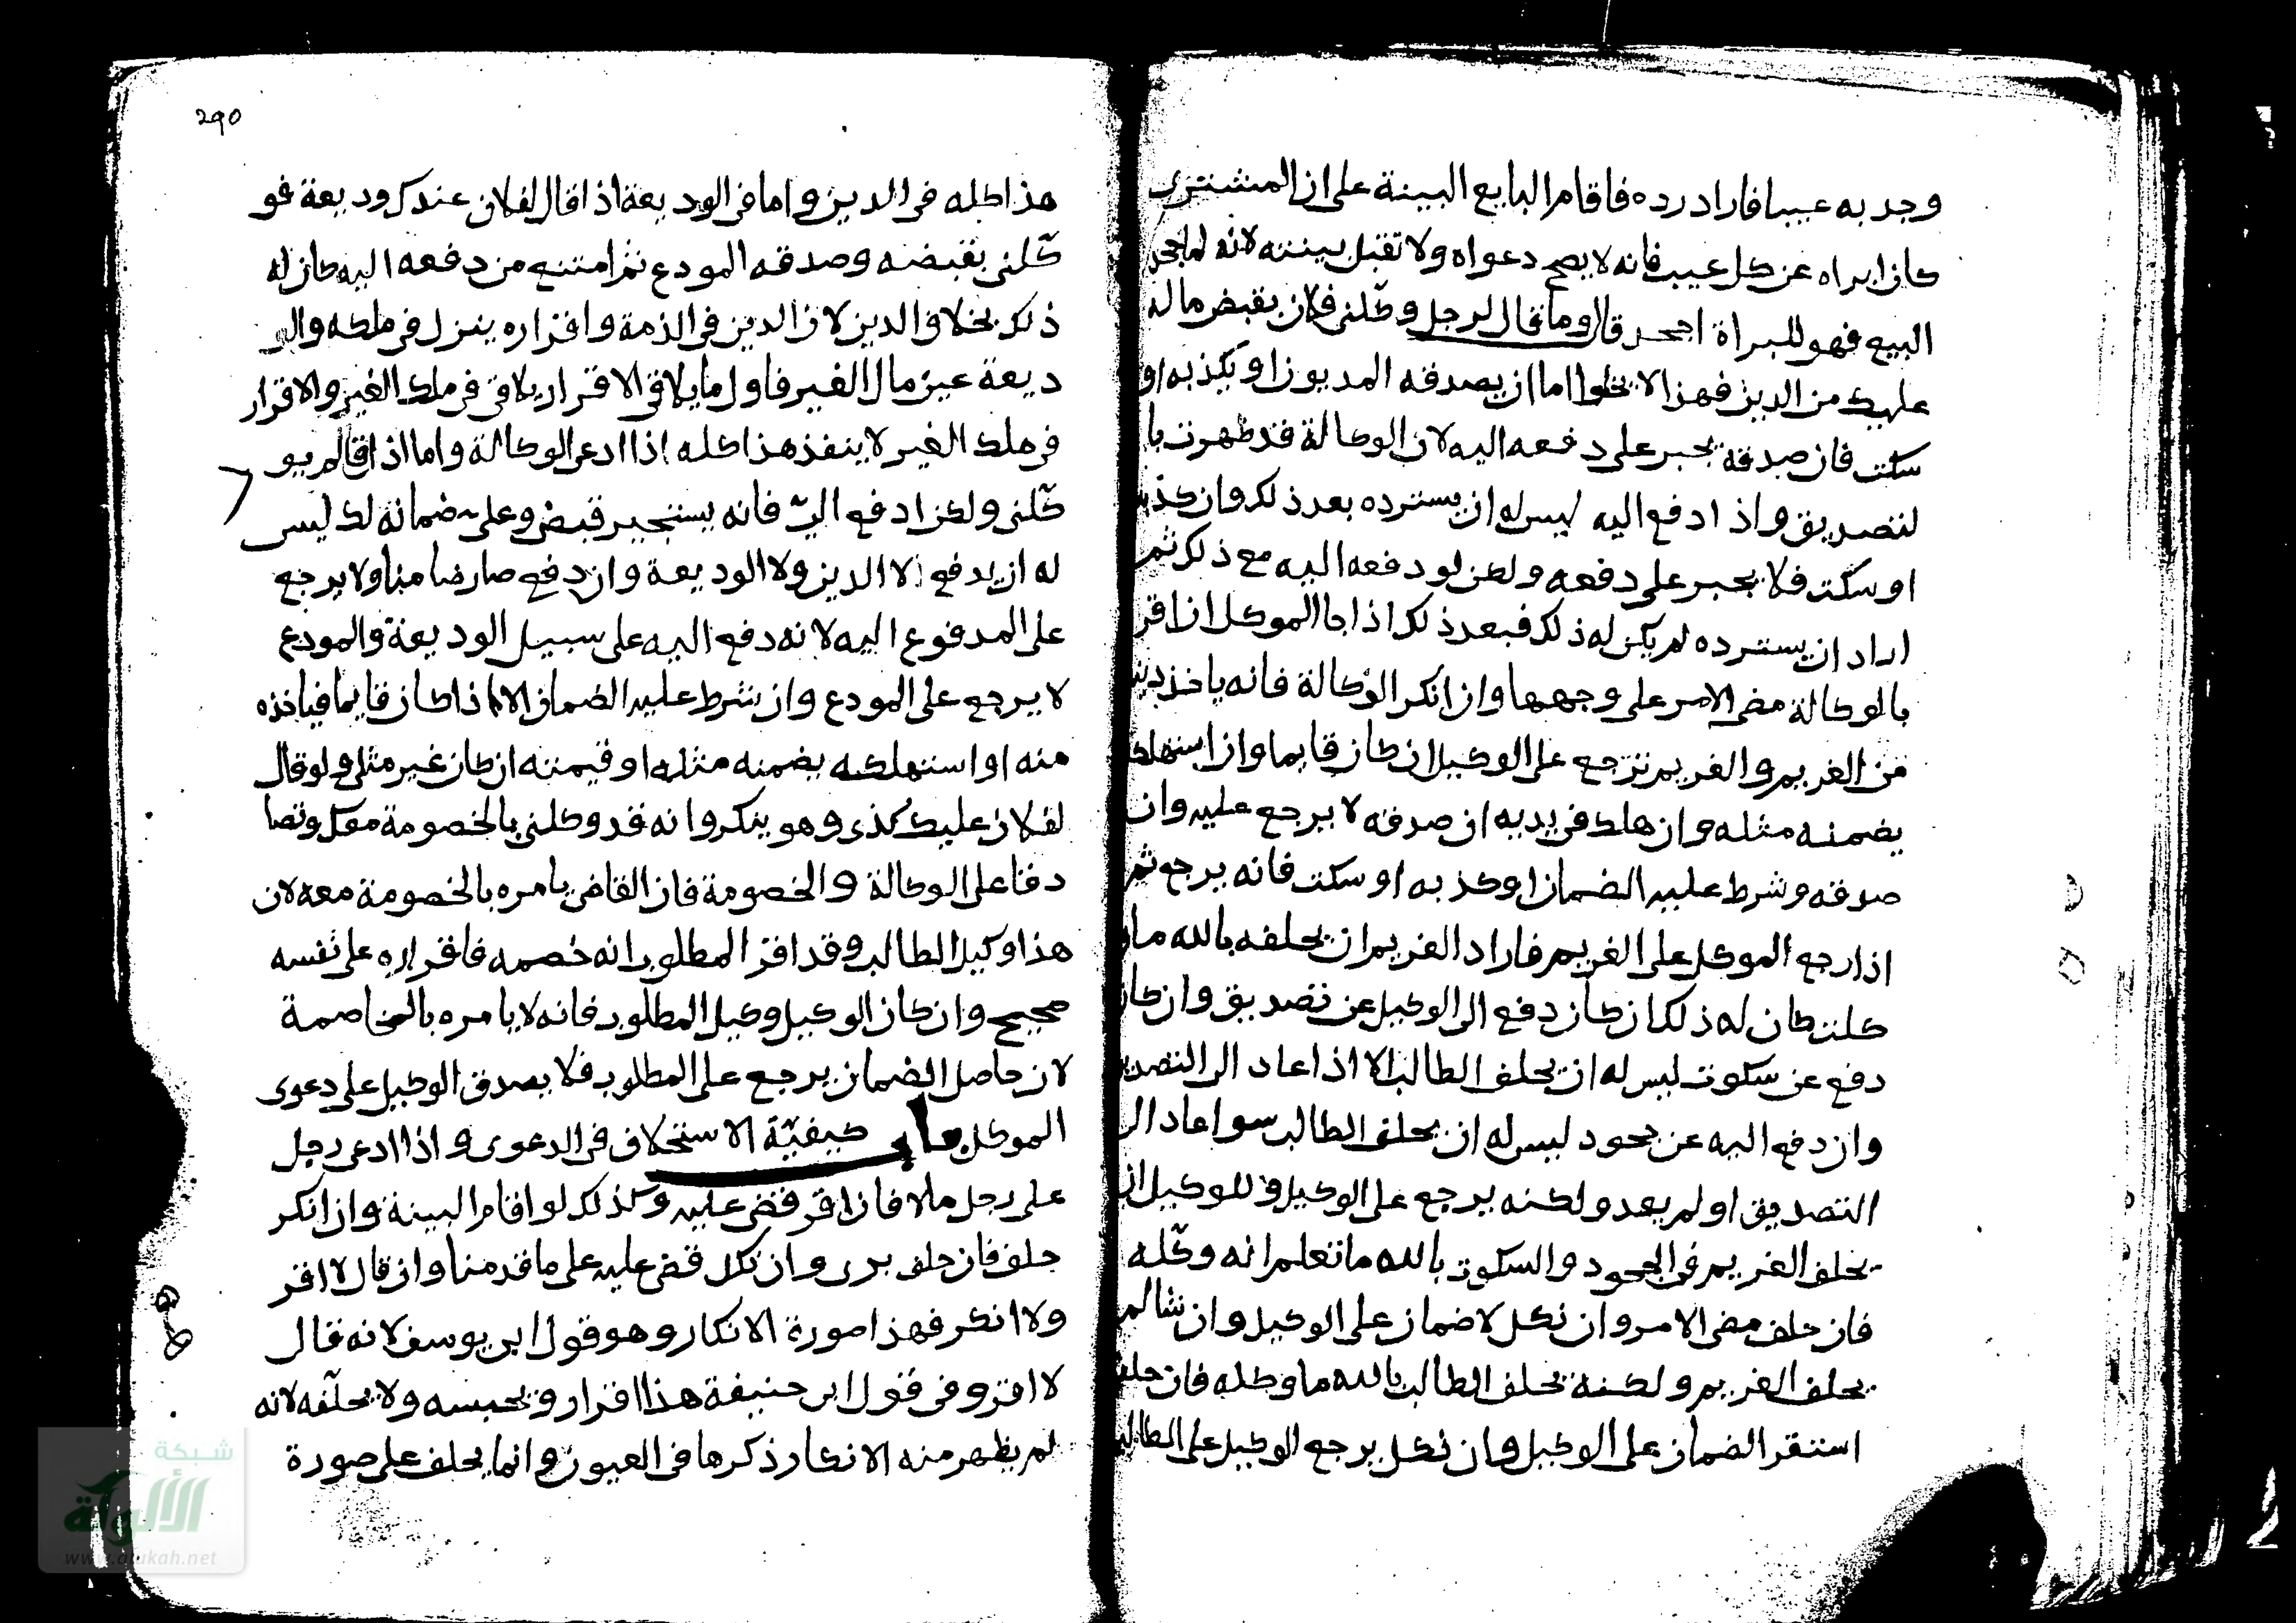 وجد به عيبا فاراد رده فاقام البايع البينة على ان المشترى
كان ابراه عن كل عيب فانه لا يصح دعواه ولا تقبل بينته لانه لما جحد
البيع فهو للبراة اجحد قال وما قال لرجل وكلنى فلان بقبض ماله
عليك من الدين فهذا لا يخلوا اما ان يصدقه المديون او يكذبه او
سكت فان صدقه يجبر على دفعه اليه لان الوكالة قد ظهرت با
لتصديق واذا دفع اليه ليس له ان يسترده بعد ذلك وان كذبه
او سكت فلا يجبر على دفعه ولكن لو دفعه اليه مع ذلك ثم
اراد ان يسترده لم يكن له ذلك فبعد ذلك اذا جا الموكل ان اقر
بالوكالة مضى الامر على وجهها وان انكر الوكالة فانه ياخذ دينه
من الغريم والغريم ترجع على الوكيل ان كان قايما وان استهلك
يضمنه مثله وان هلك فى يديه ان صدقه لا يرجع عليه وان
صدقه وشرط عليه الضمان او كذبه او سكت فانه يرجع ثم
اذا رجع الموكل على الغريم فاراد الغريم ان يحلفه بالله ما و
كلت كان له ذلك ان كان دفع الى الوكيل عن تصديق وان كان
دفع عن سكوت ليس له ان يحلف الطالب الا اذا عاد الى التصديق
وان دفع اليه عن جحود ليس له ان يحلف الطالب سوا عاد الى
التصديق او لم يعد ولكنه يرجع على الوكيل وللوكيل ان
يحلف الغريم فى الجحود والسكوت بالله ما تعلم انه وكله
فان حلف مضى الامر وان نكل لا ضمان على الوكيل وان شا لم
يحلف الغريم ولكنه يحلف الطالب بالله ما وكله فان حلف
استقر الضمان على الوكيل وان نكل يرجع الوكيل على الطالب
290
هذا كله فى الدين واما فى الوديعة اذا قال لفلان عندك وديعة فو
كلنى بقبضه وصدقه المودع ثم امتنع من دفعه اليه كان له
ذلك بخلاف الدين لان الدين فى الذمة واقراره ينزل فى ملكه والو
ديعة عين مال الغير فاول ما يلاقى الاقرار يلاقى فى ملك الغير والاقرار
فى ملك الغير لا ينفذ هذا كله اذا ادعى الوكالة واما اذا قال لم يو
كلنى ولكن ادفع الىّ فانه يستجير قبضى وعلى ضمانه لك ليس
له ان يدفع لا الدين ولا الوديعة وان دفع صار ضامنا ولا يرجع
على المدفوع اليه لانه دفع اليه على سبيل الوديعة والمودع
لا يرجع على المودع وان شرط عليه الضمان الا اذا كان قايما فياخذه
منه او استهلكه يضمنه مثله او قيمته ان كان غير مثلى ولو قال
لفلان عليك كذى وهو ينكر وانه قد وكلنى بالخصومة معك وتصا
دقا على الوكالة والخصومة فان القاضى يامره بالخصومة معه لان
هذا وكيل الطالب وقد اقر المطلوب انه خصمه فاقراره على نفسه
صحيح وان كان الوكيل وكيل المطلوب فانه لا يامره بالمخاصمة
لان حاصل الضمان يرجع على المطلوب فلا يصدق الوكيل على دعوى
الموكل باب كيفيّة الاستحلاف فى الدعوى واذا ادعى رجل
على رجل مالا فان اقر قضى عليه وكذلك لو اقام البينة وان انكر
حلف فان حلف برى وان نكل قضى عليه على ما قدمنا وان قال لا اقر
ولا انكر فهذا صورة الانكار وهو قول ابى يوسف لانه قال
لا اقر وفى قول ابى حنيفة هذا اقرار ويحبسه ولا يحلّفه لانه
لم يظهر منه الانكار ذكرها فى العيون وانما يحلف على صورة
شبكة
الألوكة
www.alukah.net